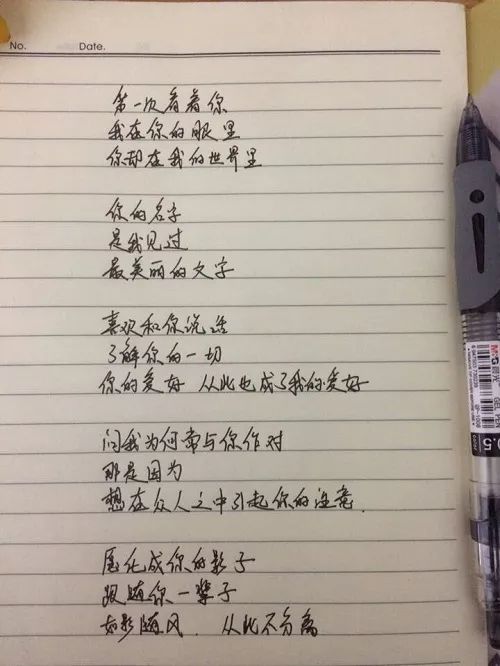 No.
Date.
第一次看着你
我在你的眼里
你却在我的世界里
你的名字
是我见过
最美丽的文字
喜欢和你说话
了解你的一切
你的爱好 从此也成了我的爱好
问我为何常与你作对
那是因为
想在众人之中引起你的注意.
愿化成你的影子
跟随你一辈子
如影随风. 从此不分离
M&G 晨光
GEL PEN
0.5